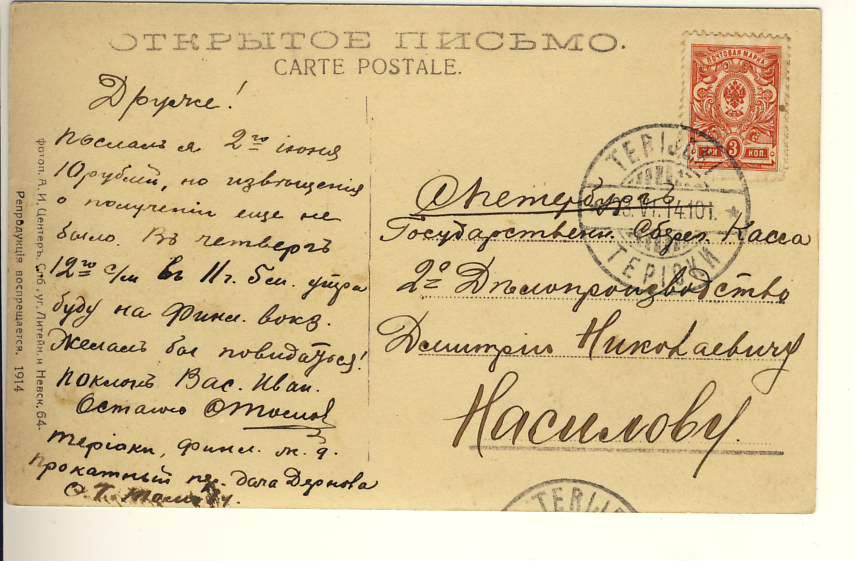 ОТКРЫТОЕ ПИСЬМО.
CARTE POSTALE.
Друже!
Послалъ я 2го іюня
10 рублей, но извѣщенія
о полученіи еще не
было. Въ четвергъ
12го с/м въ 11 ч. 5 м. утра
буду на Финл. вокз.
Желалъ бы повидаться!
Поклонъ Вас. Иван.
Остаюсь
Теріоки, Финл. ж. д.
Прокатный пер. дача Дернова
фотоп. А. И. Центеръ, Спб., уг. Литейн. и Невск. 64.
Репродукція воспрещается. 1914
ПОЧТОВАЯ МАРКА
ТРИ 3 КОП.
TERIJOKI
VI.14.10 1.
ТЕРІОКИ
С Петербургъ
Государственн. Сберег. Касса
2е Дѣлопроизводство
Дмитрію Николаевичу
Насилову.
TERIJO